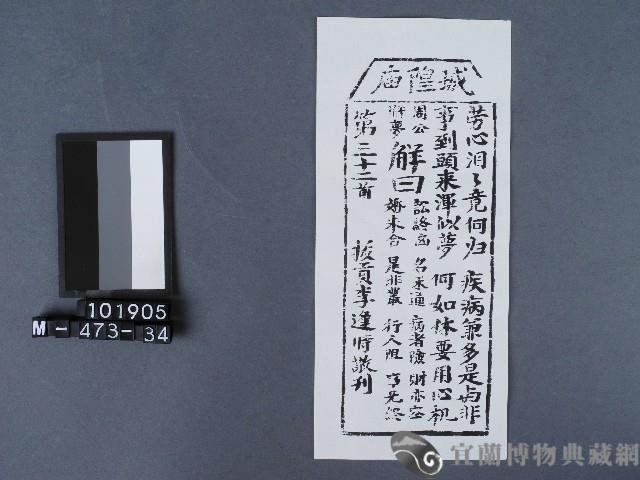 城隍庙
劳心汨々竟何归 疾病兼多是与非
事到頭来渾似夢 何如休要用心机
周公解夢 解曰 訟終凶 名未通 病者險 財亦空
婚未合 是非叢 行人阻 亨先終
第三十二首 拔貢李逢时敬刊
101905
M-473-34
宜蘭博物典藏網